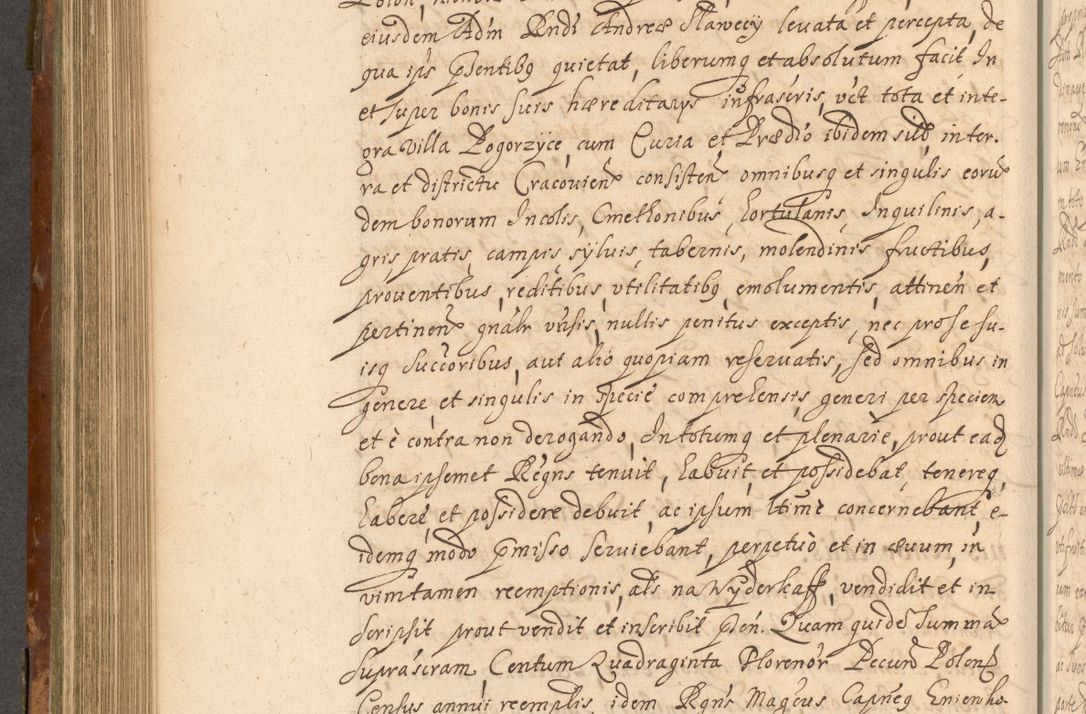 eiusdem Adm Rndi Andreæ Sławecÿ leuata et percepta, de
qua ips p̃sentibq quietat, liberumq et absolutum facit. In
et super bonis suis hæreditarÿs infrascris, vct tota et inte-
gra villa Pogorzÿce, cum Curia et Prædio ibidem sitt, in ter-
ra et districtu Cracouien consisten omnibusq et singulis eorun
dem bonorum Incolis, Cmetlonibus, hortulanis, Inquilinis, a-
gris, pratis, campis, sÿluis, tabernis, molendinis fructibus,
prouentibus, reditibus, vtilitatibq, emolumentis, attinen et
pertinen gnalr vnsis, nullis penitus exceptis, nec pro se su-
isq succoribus, aut alio quopiam reseruatis, sed omnibus in
genere et singulis in specie comprehensis, generi per speciem
et è contra non derogando, In totum q et plenarie, prout ead
bona ipsemet Rgns tenuit, habuit, et possidebat, tenereq
habere et possidere debuit, ac ipsum ltime concernebant, e-
idemq modo p̃misso seruiebant, perpetuò et in æuum, in
vim tamen reemptionis, als na Wÿderkaff, vendidit et in-
scripsit prout vendit et inscribit p̃sen. Quam quidem summam
suprascram, Centum Quadraginta Florenor Pecun Polon
Census annui reemplis, idem Rgns Magcus Capneq